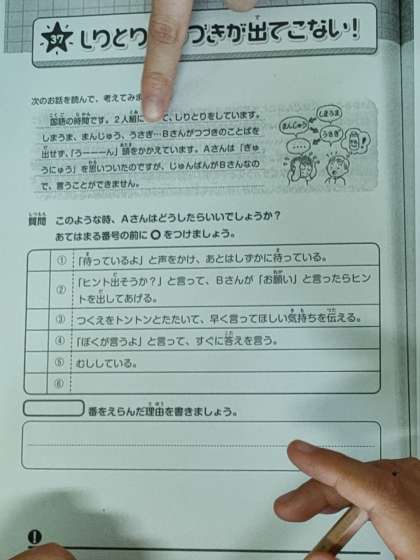 37 しりとり づきが出てこない!
次のお話を読んで、考えてみま
国語の時間です。2人組に て、しりとりをしています。
しうまま、まんじゅう、うさぎ…Bさんがつづきのことばを
出せず、「うーーーん」頭をかかえています。Aさんは「ぎゅ
うにゅう」を思いついたのですが、じゅんばんがBさんなの
で、言うことができません。
しまうま
まんじゅう
うさぎ
....
質問 このような時、Aさんはどうしたらいいでしょうか?
あてはまる番号の前に○をつけましょう。
① 「待っているよ」と声をかけ、あとはしずかに待っている。
② 「ヒント出そうか?」と言って、Bさんが「お願い」と言ったらヒン
トを出してあげる。
③ つくえをトントンとたたいて、早く言ってほしい気持ちを伝える。
④ 「ぼくが言うよ」と言って、すぐに答えを言う。
⑤ むししている。
⑥
番をえらんだ理由を書きましょう。
!